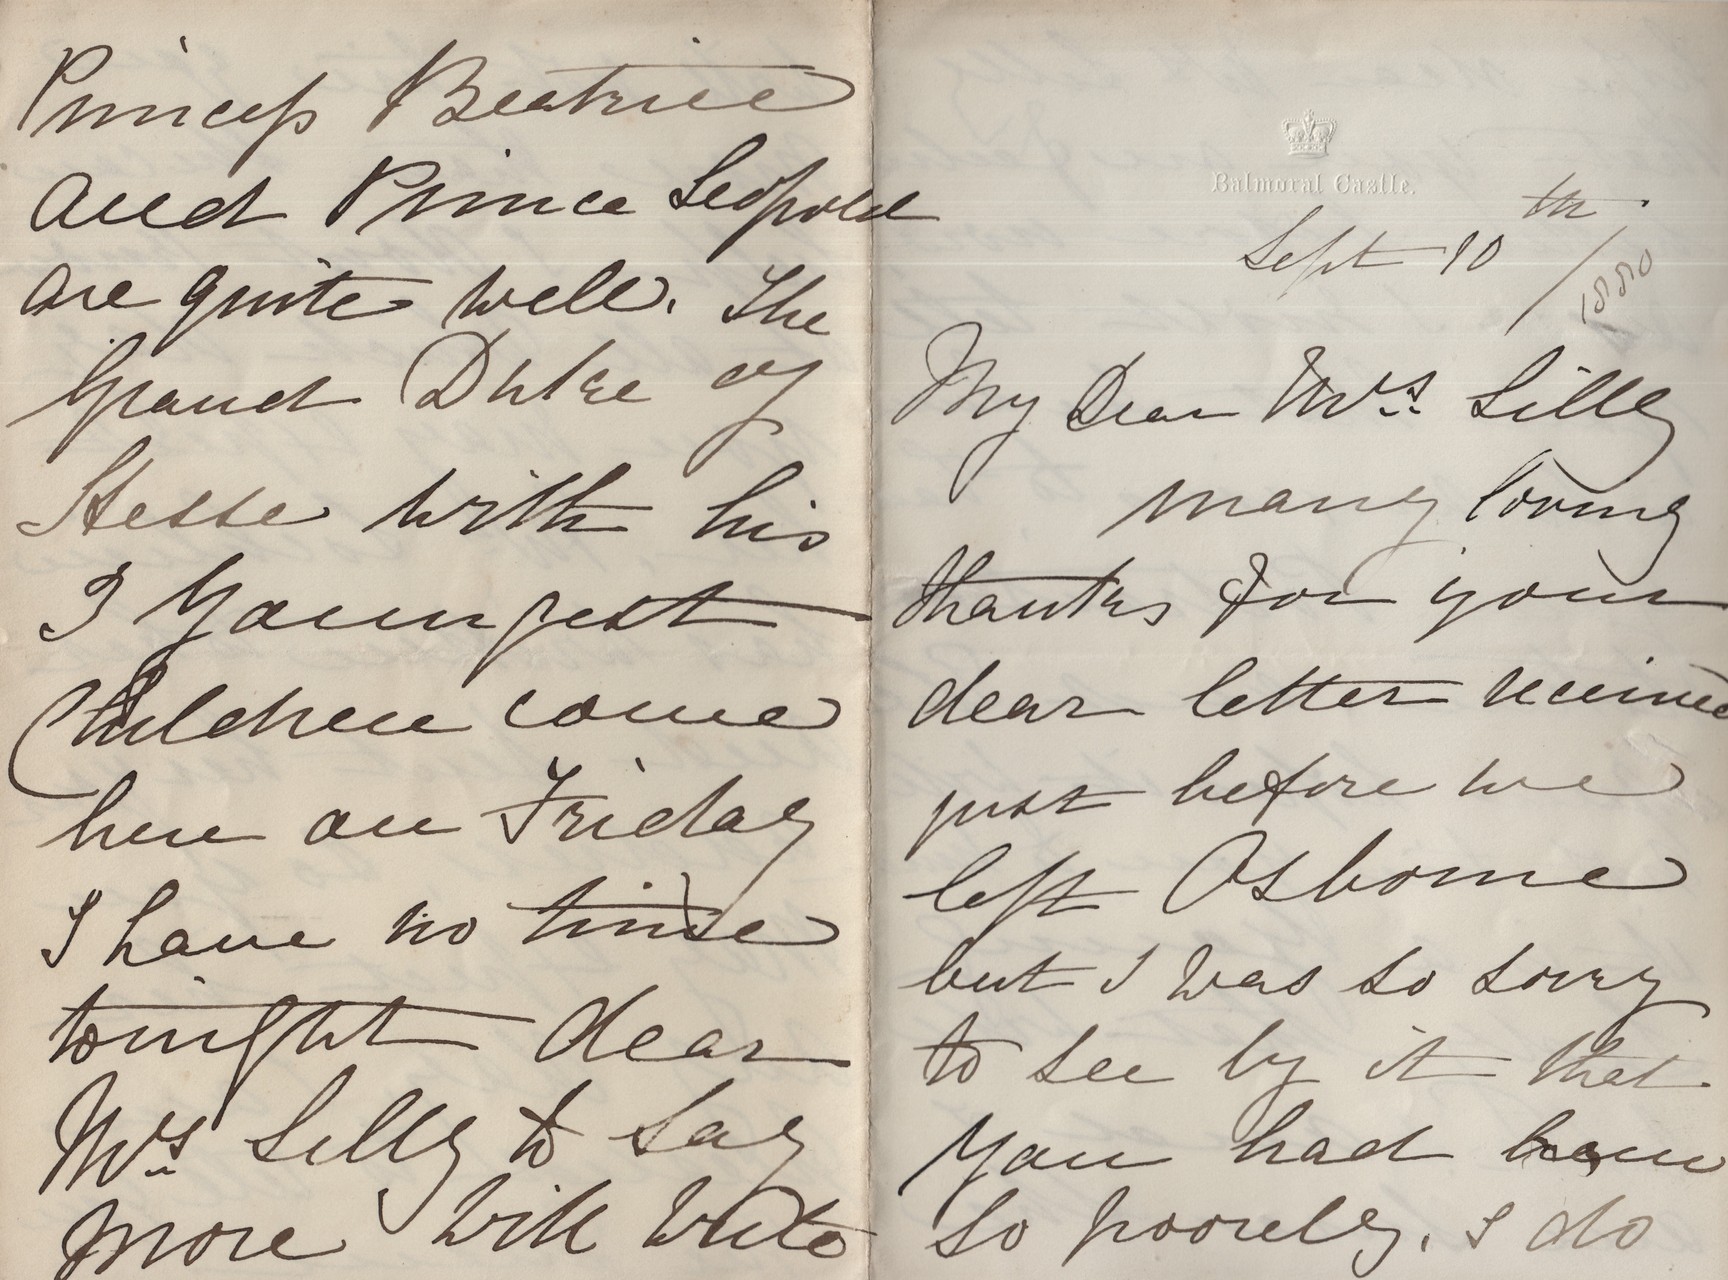 Princess Beatrice
and Prince Leopold
are quite well. The
Grand Duke of
Hesse with his
3 Youngest
Children come
here on Friday
I have no time
tonight dear
Mrs. Lilly to say
more will write
Balmoral Castle.
Sept 10th / 1880
My Dear Mrs. Lilly
many loving
thanks for your
dear letter received
just before we
left Osborne
but I was so sorry
to see by it that
you had been
so poorely. I do